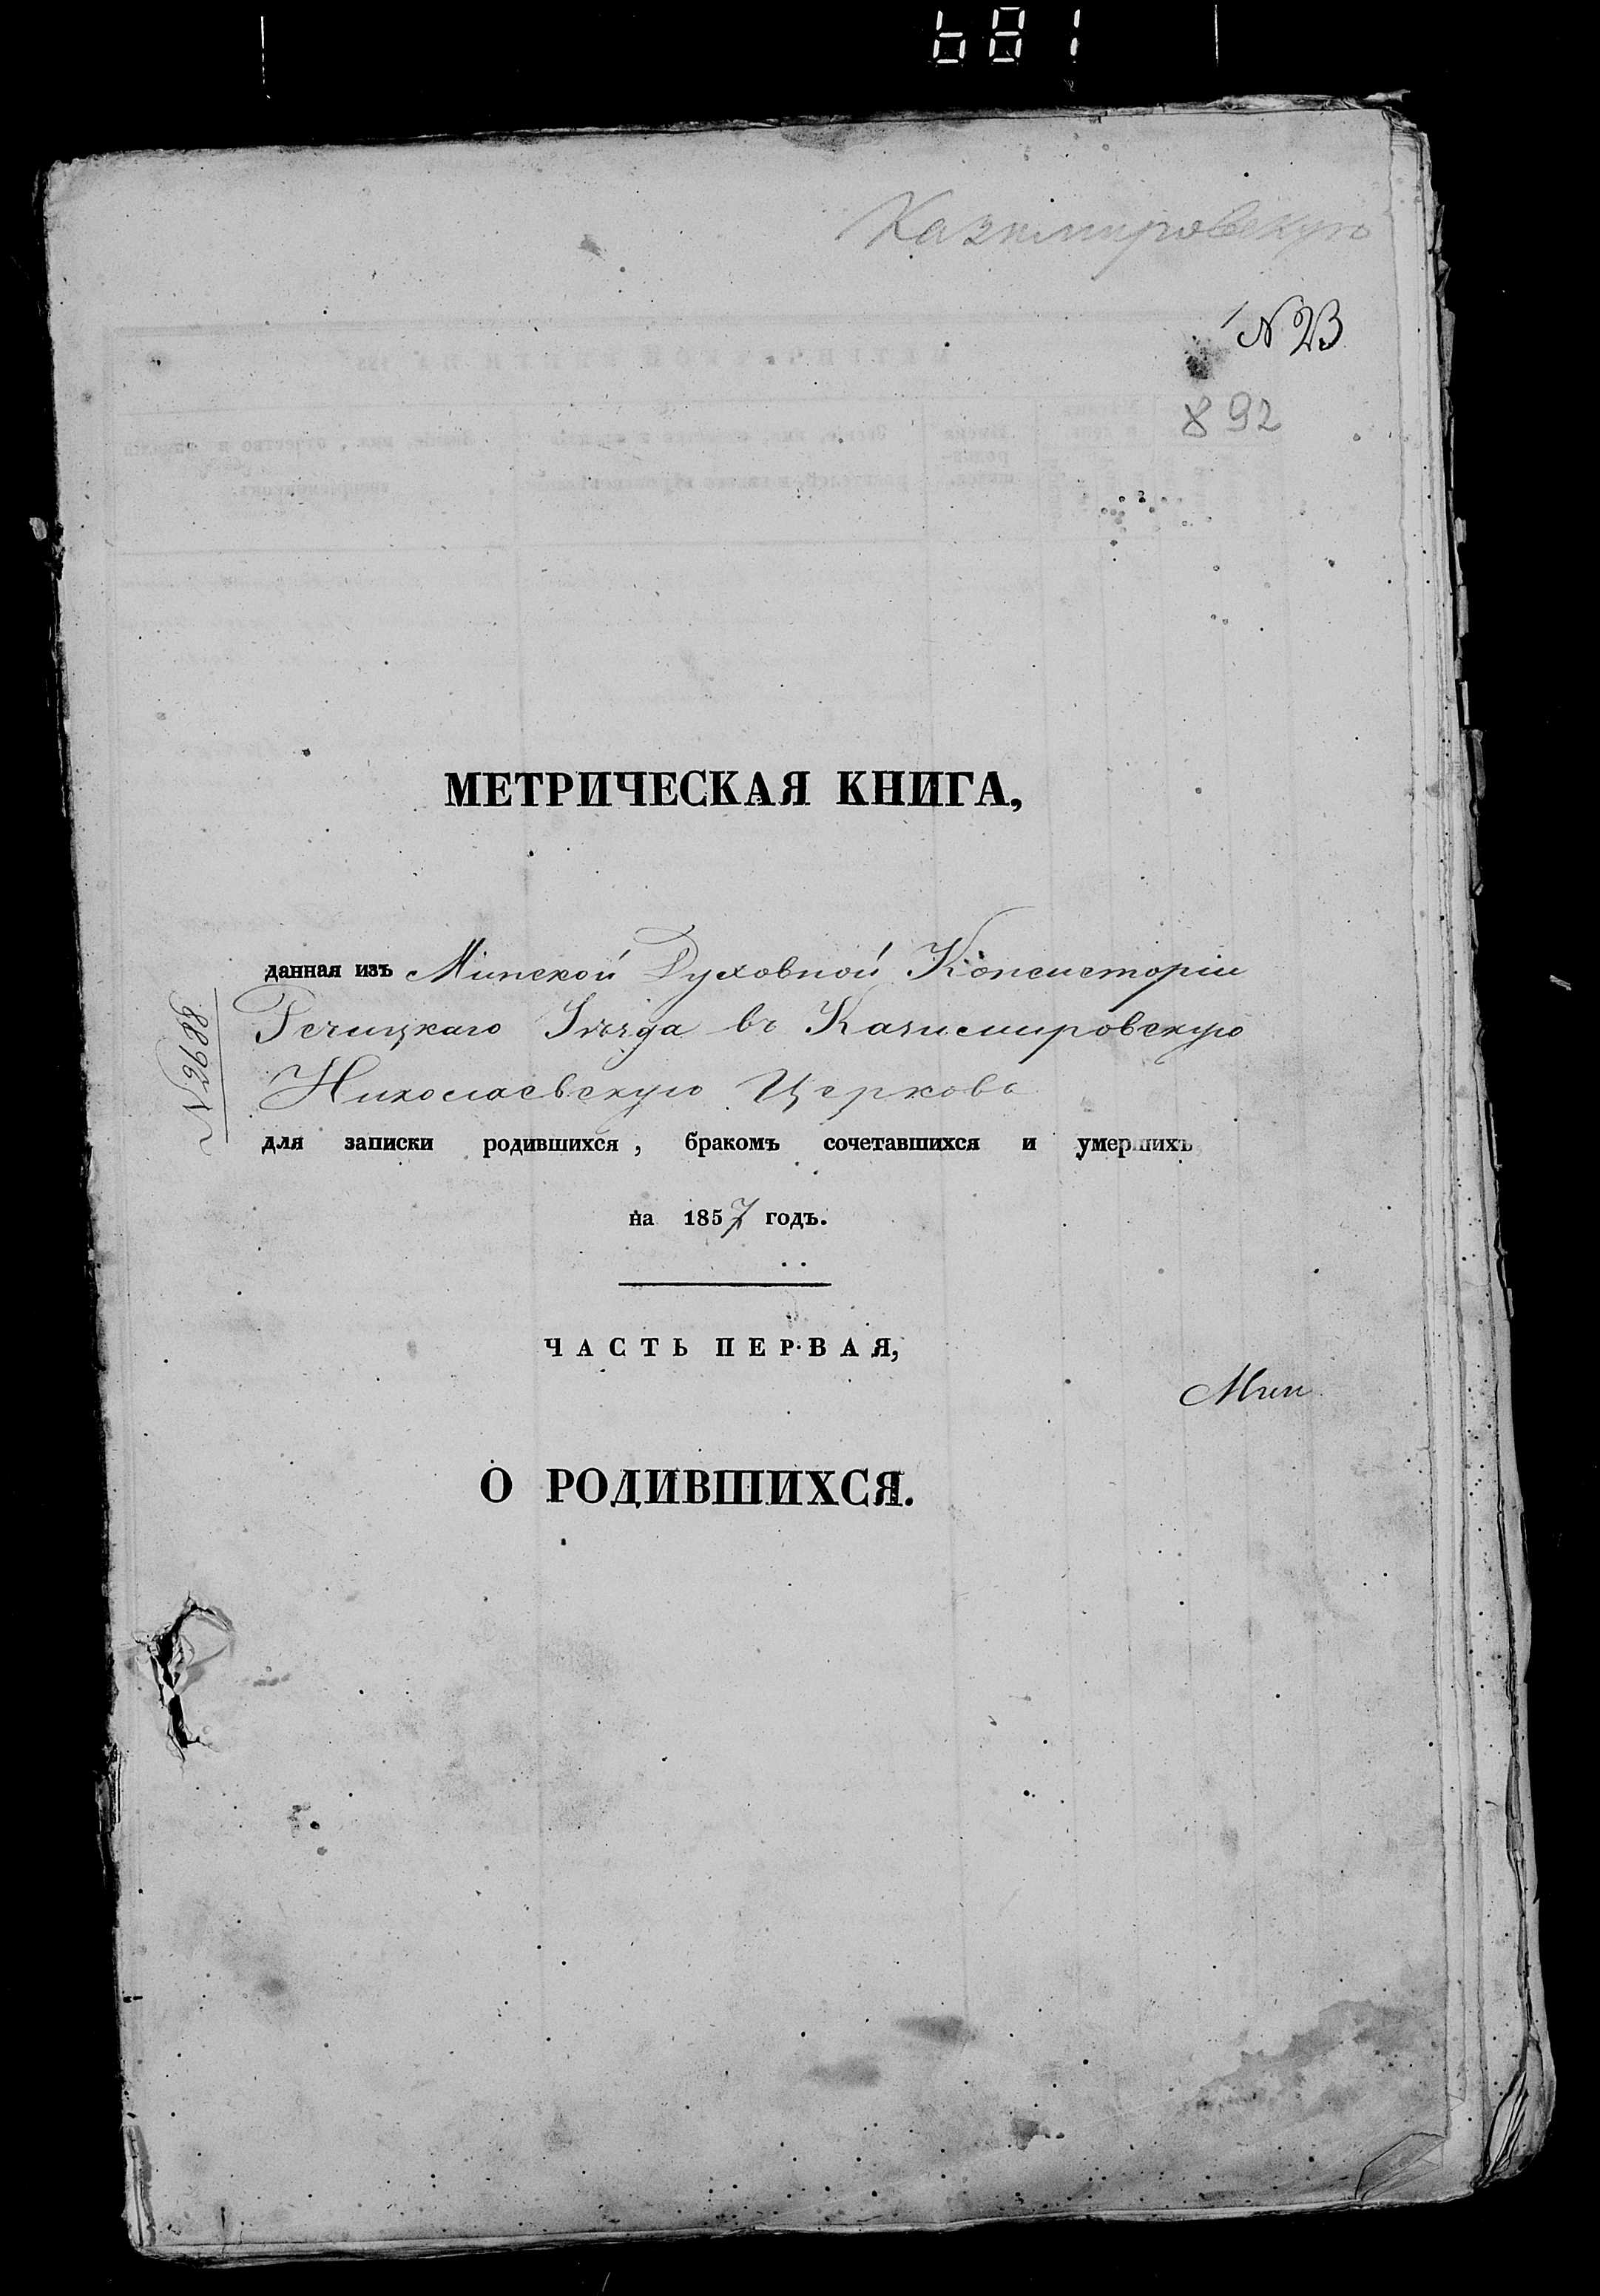 681
Казимировскую
N 23
892
МЕТРИЧЕСКАЯ КНИГА,
данная изъ Минской Духовной Консисторіи
Речицкаго Уѣзда въ Казимировскую
Николаевскую Церковь
N 2688
для записки родившихся, бракомъ сочетавшихся и умершихъ
на 1857 годъ.
ЧАСТЬ ПЕРВАЯ,
Мин
О РОДИВШИХСЯ.